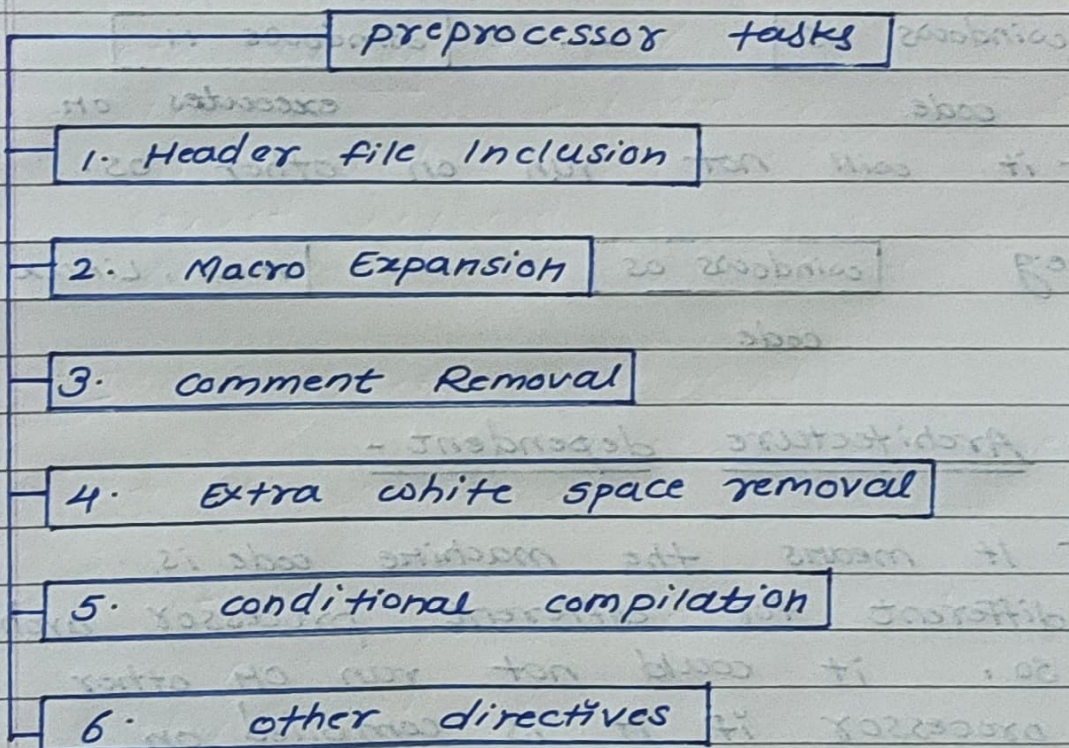 preprocessor tasks
1. Header file Inclusion
2. Macro Expansion
3. comment Removal
4. Extra white space removal
5. conditional compilation
6. other directives